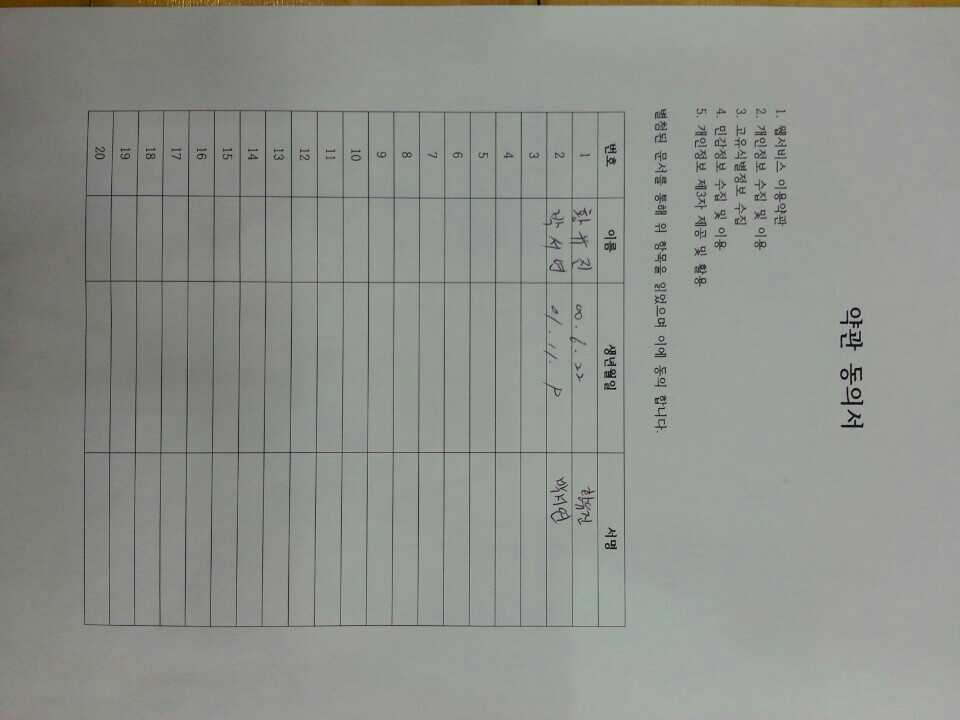 약관 동의서
1. 웹서비스 이용약관
2. 개인정보 수집 및 이용
3. 고유식별정보 수집
4. 민감정보 수집 및 이용
5. 개인정보 제3자 제공 및 활용
별첨된 문서를 통해 위 항목을 읽었으며 이에 동의 합니다.
번호 이름 생년월일 서명
1 황유진 00.6.22 황유진
2 01.11.
3
4
5
6
7
8
9
10
11
12
13
14
15
16
17
18
19
20